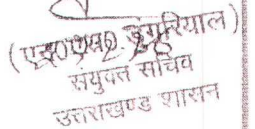 (एन०एस० डुंगरियाल)
संयुक्त सचिव
उत्तराखण्ड शासन